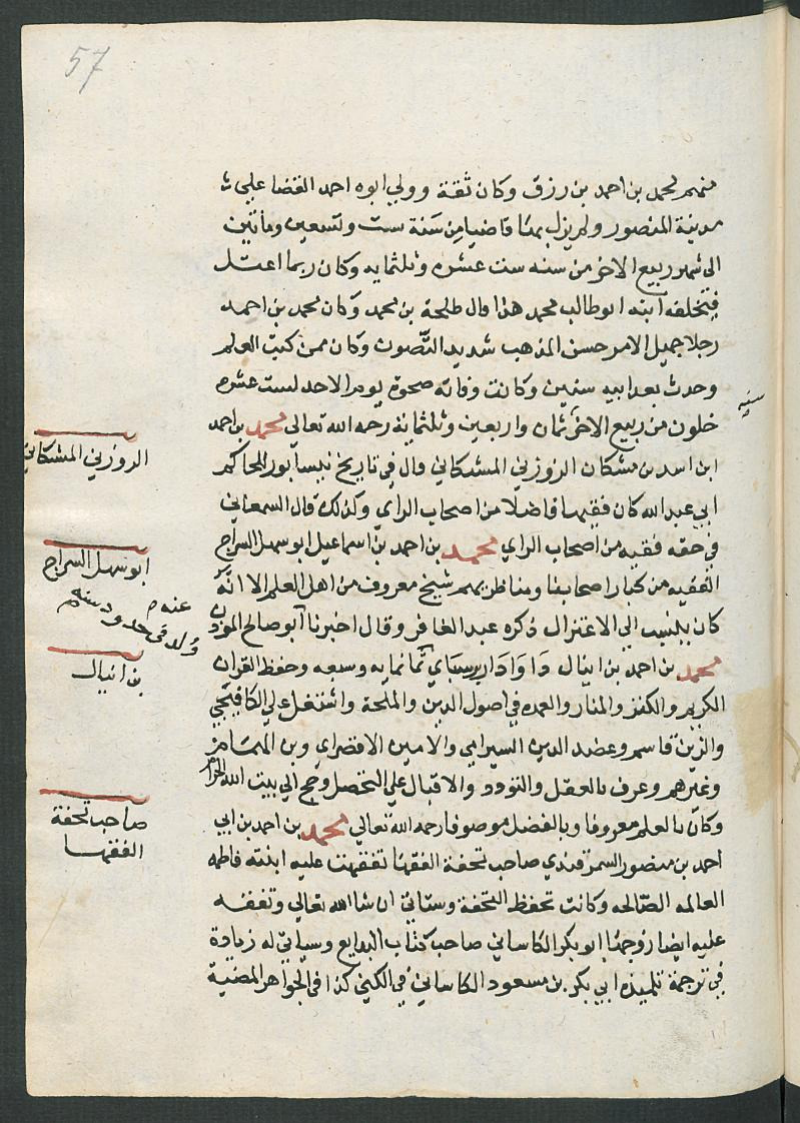 57
منهم محمد بن احمد بن رزق وكان ثقة وولي ابوه احمد القضا علي
مدينة المنصور ولم يزل بها قاضيا من سنة ست وتسعين ومأتين
الى شهر ربيع الاخر من سنه ست عشره وثلثمايه وكان ربما اعتل
فيخلفه ابنه ابو طالب محمد هذا قال طلحة بن محمد وكان محمد بن احمد
رجلا جميل الامر حسن المذهب شديد التصون وكان ممن كتب العلم
وحدث بعد ابيه سنين وكانت وفاته ضحوة يوم الاحد لست عشره
خلون من ربيع الاخر ثمان واربعين وثلثماية رحمه الله تعالى محمد بن احمد
سنه
ابن اسد بن مشكان الزوزني المشكاني قال في تاريخ نيسابور للحاكم
الزوزني المشكاني
ابي عبد الله كان فقيها فاضلا من اصحاب الراي وكذلك قال السمعاني
في حقه فقيه من اصحاب الراي محمد بن احمد بن اسماعيل ابو سهل السراج
ابو سهل السراج
الفقيه من كبار اصحابنا ومناظريهم شيخ معروف من اهل العلم الا انه
كان ينسب الى الاعتزال ذكره عبد الغافر وقال اخبرنا ابو صالح الموذن
عنه م
ولد في حدود سنه
محمد بن احمد بن اينال دوادار برسباي ثمانمايه وسبعه وحفظ القران
بن اينال
الكريم والكنز والمنار والعمده في اصول الدين والملحة واشتغل على الكافيجي
والزين قاسم وعضد الدين السيرامي والامين الاقصراي وبن الهمام
وغيرهم وعرف بالعقل والتودد والاقبال علي التحصل وحج الي بيت الله الحرام
وكان بالعلم معروفا وبالفضل موصوفا رحمه الله تعالى محمد بن احمد بن ابي
صاحب تحفة
الفقها
احمد بن منصور السمرقندي صاحب تحفة الفقها تفقهت عليه ابنته فاطمه
العالمه الصالحه وكانت تحفظ التحفة وستاتي ان شا الله تعالى وتفقه
عليه ايضا زوجها ابو بكر الكاساني صاحب كتاب البدايع وسياتي له زيادة
في ترجمة تلميذه ابي بكر بن مسعود الكاساني في الكني كذا في الجواهر المضية